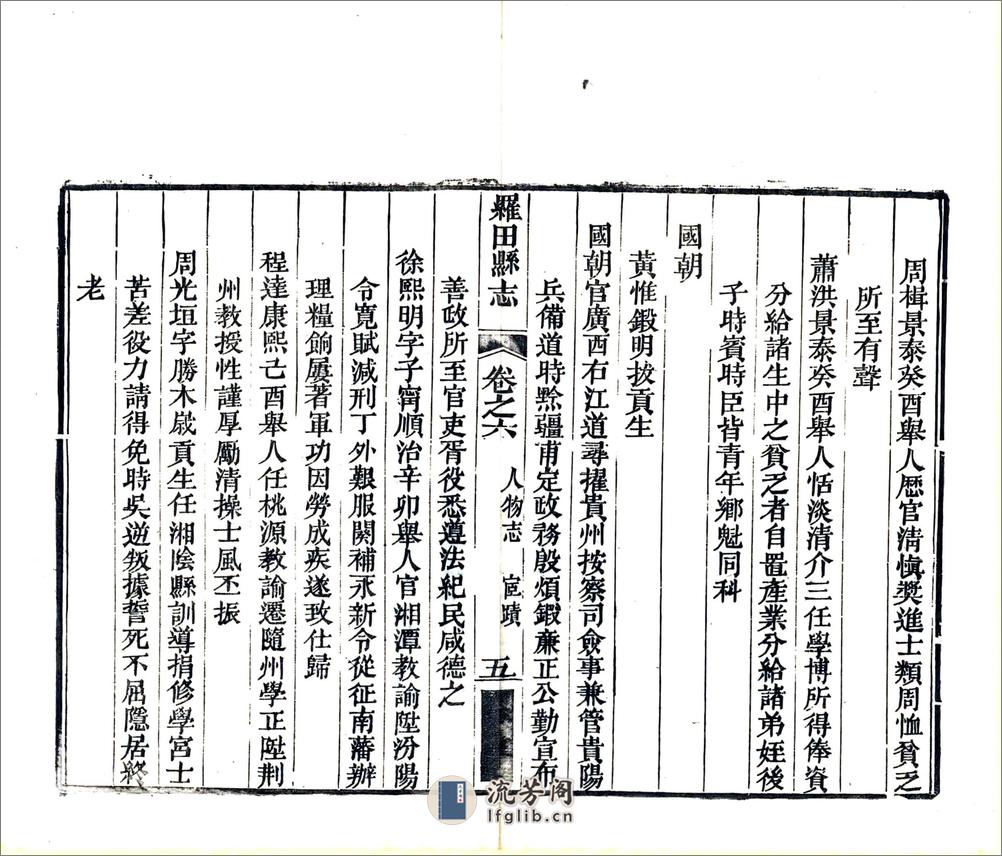 周楫景泰癸酉舉人厯官清愼奬進士類周恤貧乏
所至有聲
蕭洪景泰癸酉舉人恬淡清介三任學博所得俸資
分給諸生中之貧乏者自置產業分給諸弟姪後
子時賓時臣皆青年鄉魁同科
國朝
黃惟鍛明拔貢生
國朝官廣西右江道尋擢貴州按察司僉事兼管貴陽
兵備道時黔疆甫定政務殷煩鍛亷正公勤宣布
羅田縣志
卷之六
人物志
宦蹟
五
善政所至官吏胥役悉遵法紀民咸德之
徐熙明字子甯順治辛卯舉人官湘潭教諭陞汾陽
令寛賦減刑丁外艱服闋補永新令從征南藩辦
理糧餉屢著軍功因勞成疾遂致仕歸
程達康熙己酉舉人任桃源教諭遷隨州學正陞荆
州教授性謹厚勵清操士風丕振
周光垣字勝木歲貢生任湘陰縣訓導捐修學宮士
苦差役力請得免時吳逆叛據誓死不屈隱居終
老
流芳阁
lfglib.cn